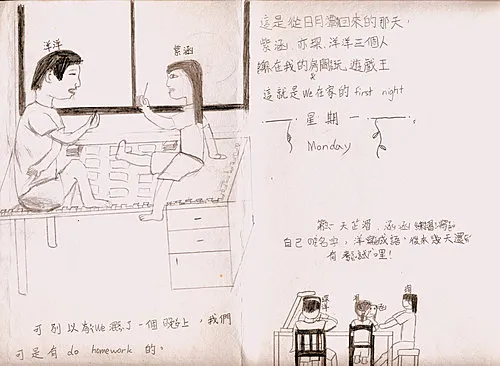 洋洋
紫涵
可別以為We混了一個晚上，我們
可是有 do homework 的。
這是從日月潭回來的那天，
紫涵、亦琛、洋洋三個人
在我的房間玩遊戲王
這就是We在家的 first night
星期一
Monday
第一天芷瑄、涵涵
自己的名字，洋 成語，後來幾天還
有 哩！